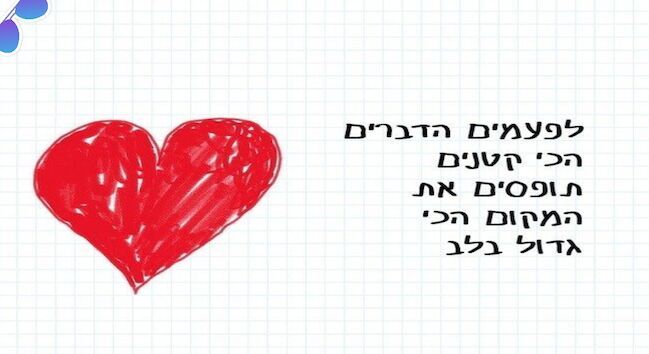 לפעמים הדברים
הכי קטנים
תופסים את
המקום הכי
גדול בלב